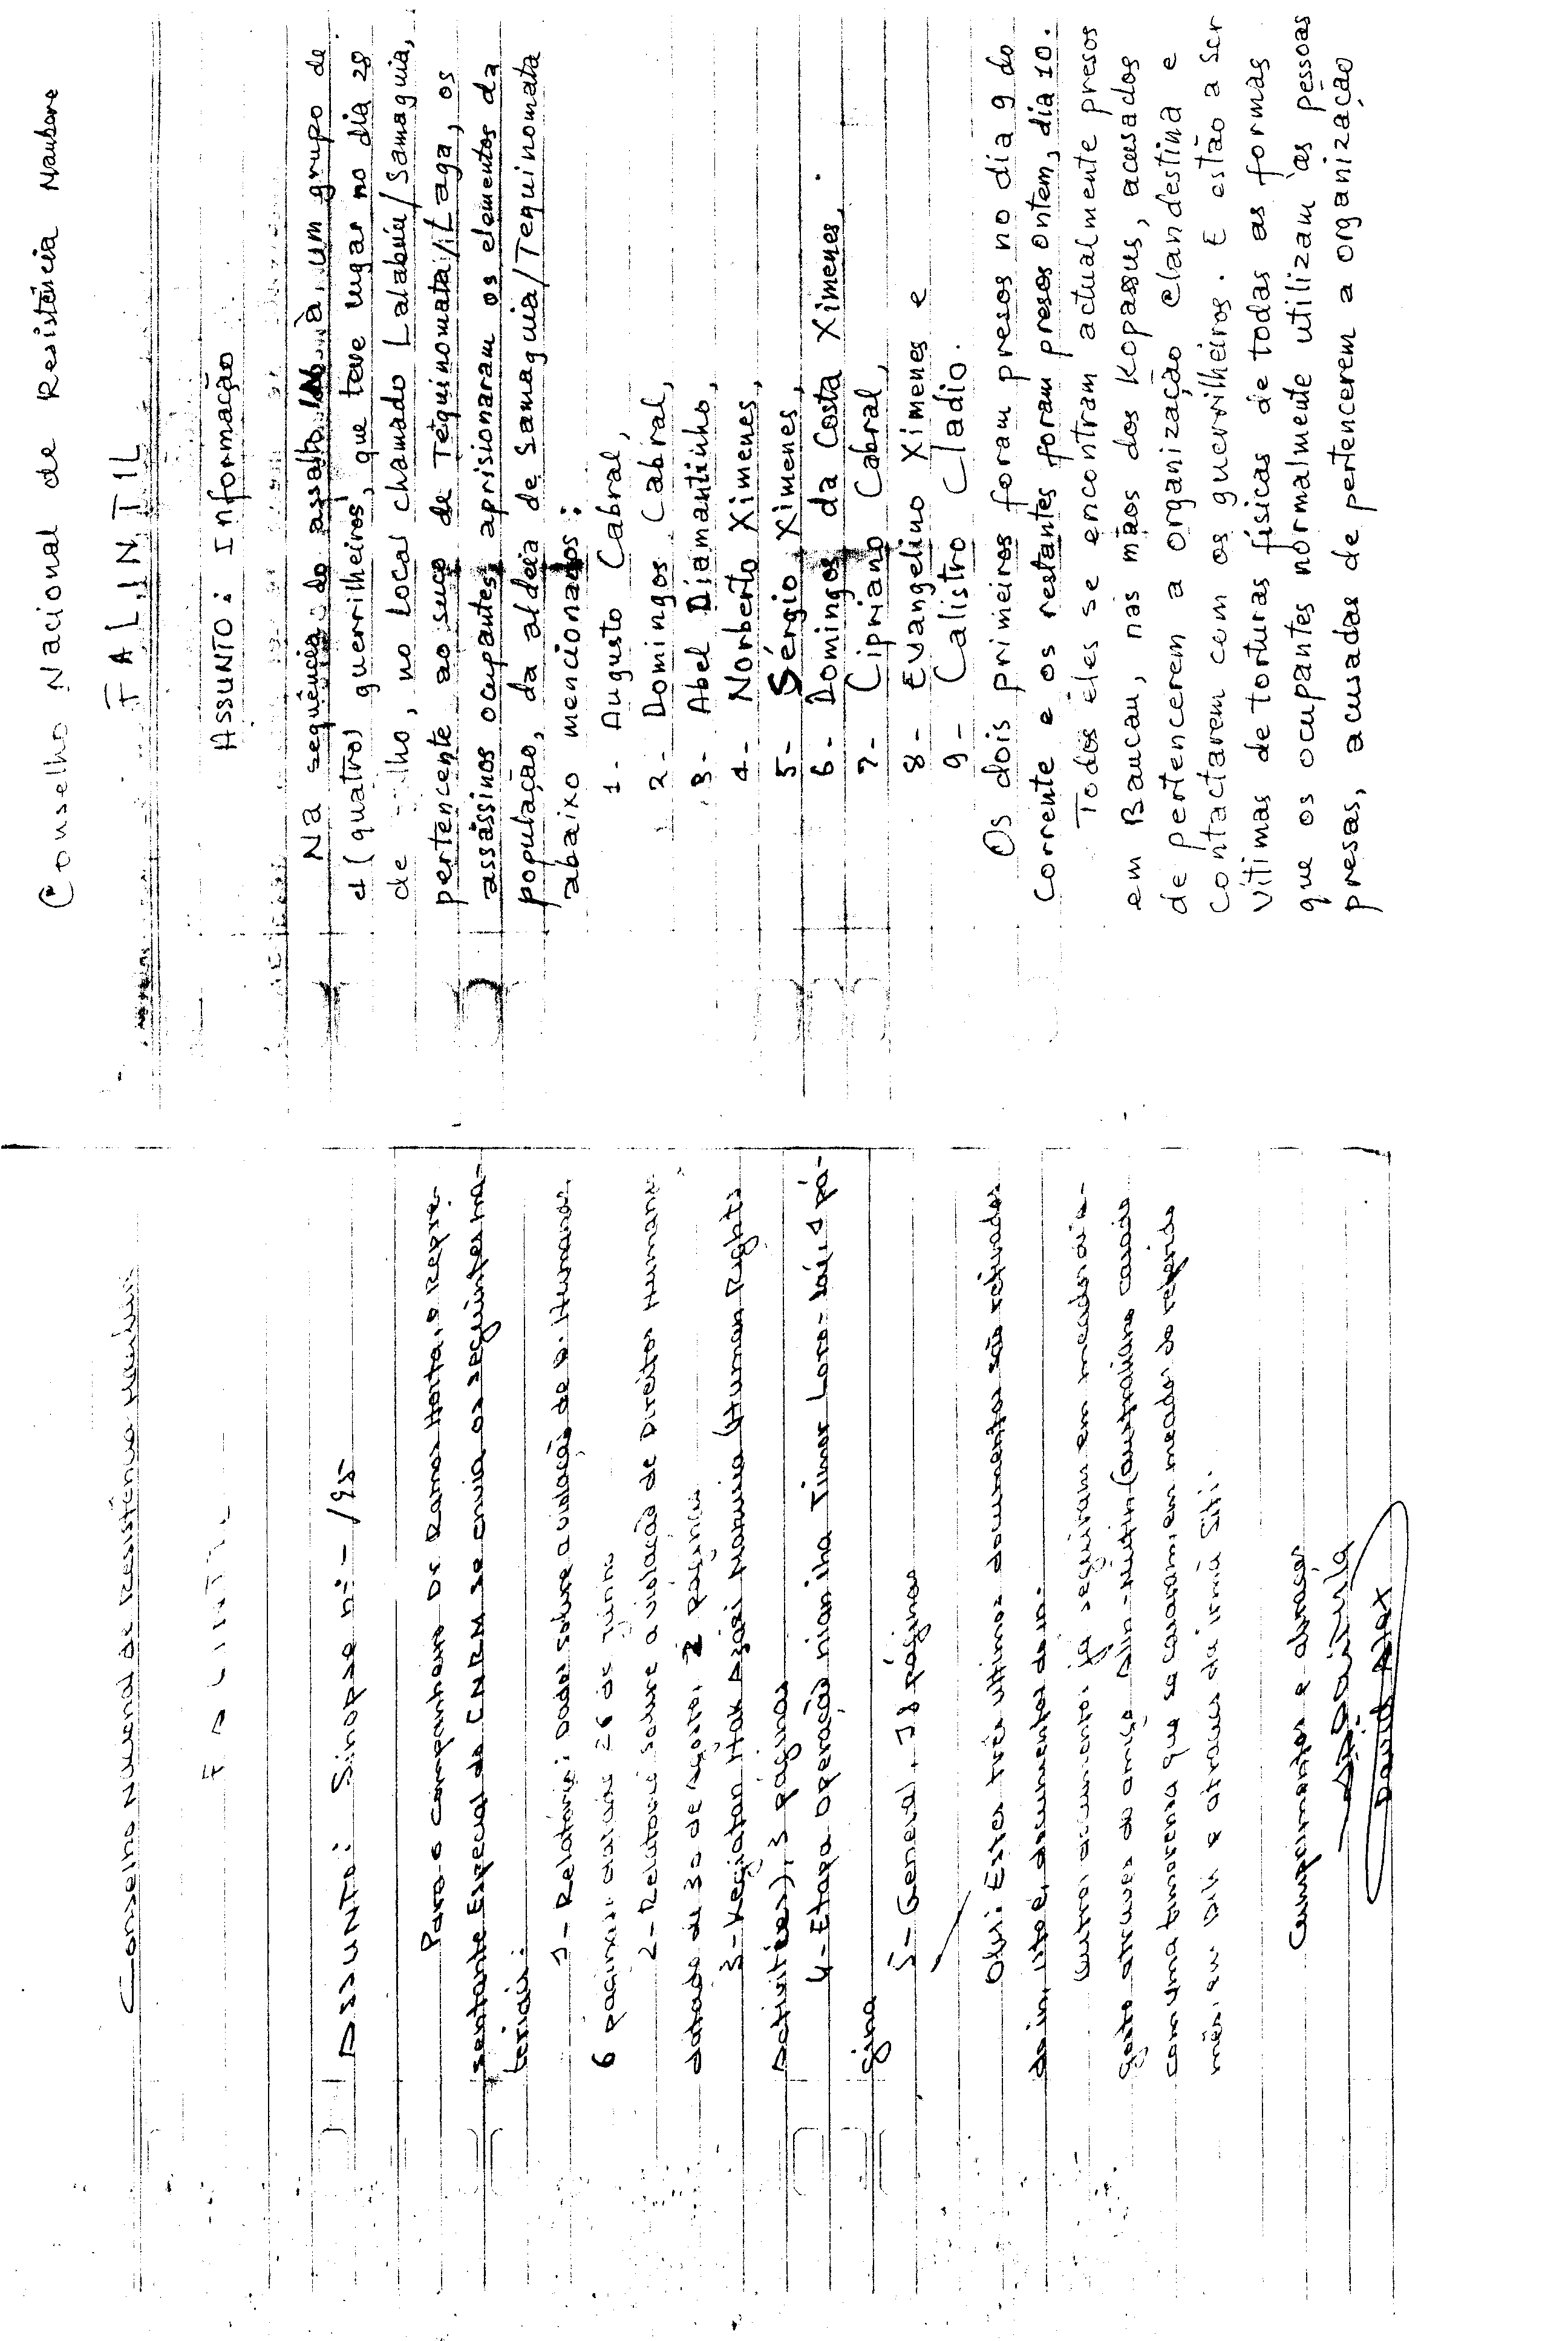 Conselho Nacional de Resistência Maubere
FALINTIL
ASSUNTO: Sinopse nº - /95
Para o companheiro Dr Ramos Horta, o Repre-
sentante Especial do CNRM se envia os seguintes ma-
teriais:
1- Relatório: Dados sobre a violação de D. Humanos,
6 páginas, 26 de junho
2- Relatório sobre a violação de Direitos Humanos
datado de 30 de agosto, 2 páginas
3- Kegiatan Hak Azasi Manusia (Human Rights
Activities), 3 páginas
4- Etapa Operação
Timor Loro-saé, 1 pá-
gina
5- General, 18 páginas
Obs: Estes três ultimos documentos são retirados
Outros documentos já seguiram em meados de a-
gosto atraves do amigo (australiano casado
com uma timorense que se casaram em meados do referido
mês, em Dili e atraves da irmã
Cumprimentos e abraços
David Alex
Conselho Nacional de Resistência Maubere
FALINTIL
ASSUNTO: Informação
Na sequência do assalto à um grupo de
4 (quatro) guerrilheiros, que teve lugar no dia 28
de Julho, no local chamado Lalabuiu/Samaguia,
pertencente ao suco de Tequinomata/Laga, os
assassinos ocupantes, aprisionaram os elementos da
população, da aldeia de Samaguia/Tequinomata
abaixo mencionados:
1- Augusto Cabral,
2- Domingos Cabral,
3- Abel Diamantinho,
4- Norberto Ximenes,
5- Sérgio Ximenes,
6- Domingos da Costa Ximenes,
7- Cipriano Cabral,
8- Evangelino Ximenes e
9- Calistro Cladio.
Os dois primeiros foram presos no dia 9 do
corrente e os restantes foram presos ontem, dia 10.
Todos êles se encontram actualmente presos
em Baucau, nas mãos dos Kopassus, acusados
de pertencerem a organização clandestina e
contactarem com os guerrilheiros. E estão a ser
vítimas de torturas físicas de todas as formas
que os ocupantes normalmente utilizam às pessoas
presas, acusadas de pertencerem a organização